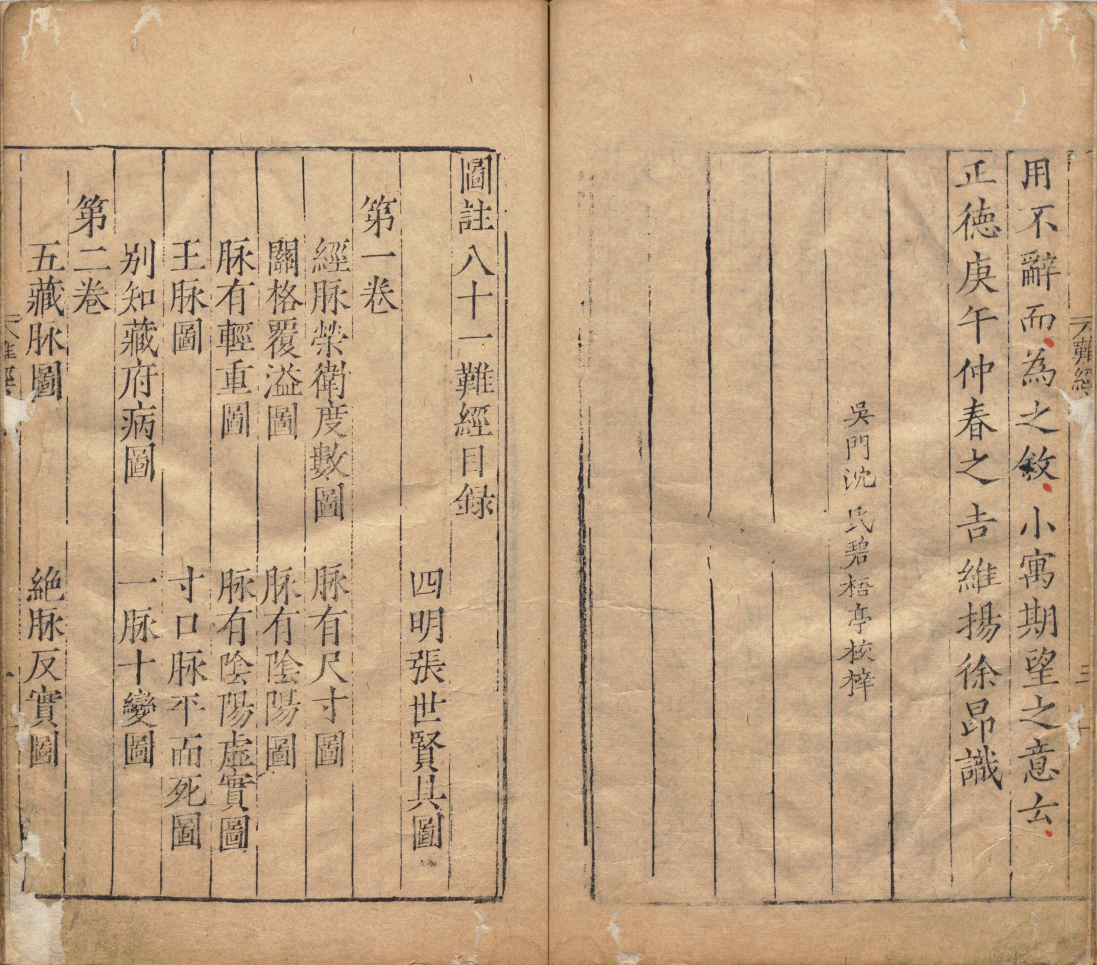 用不辭而為之敘小寓期望之意云
正德庚午仲春之吉維揚徐昂識
吳門沈氏碧梧亭校梓
圖註八十一難經目録
四明張世賢共圖
第一卷
經脉榮衛度數圖　脉有尺寸圖
關格覆溢圖　脉有陰陽圖
脉有輕重圖　脉有陰陽虛實圖
王脉圖　寸口脉平而死圖
别知藏府病圖　一脉十變圖
第二卷
五藏脉圖　絶脉反實圖